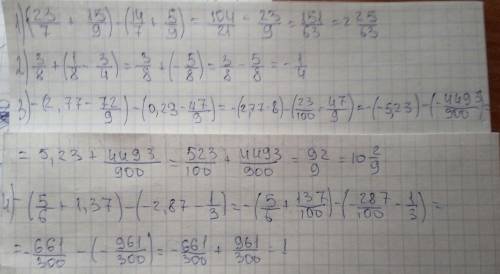 1) (23/7 + 15/9) - (14/7 + 5/9) = 104/21 - 23/9 = 151/63 = 2 25/63
2) 3/8 + (1/8 - 3/4) = 3/8 + (-5/8) = 3/8 - 5/8 = -1/4
3) -(2,77 - 72/9) - (0,23 - 47/9) = -(2,77-8) - (23/100 - 47/9) = -(-5,23) - (-4493/900)
= 5,23 + 4493/900 = 523/100 + 4493/900 = 92/9 = 10 2/9
4) -(5/6 + 1,37) - (-2,87 - 1/3) = -(5/6 + 137/100) - (-287/100 - 1/3) =
= -661/300 - (-961/300) = -661/300 + 961/300 = 1